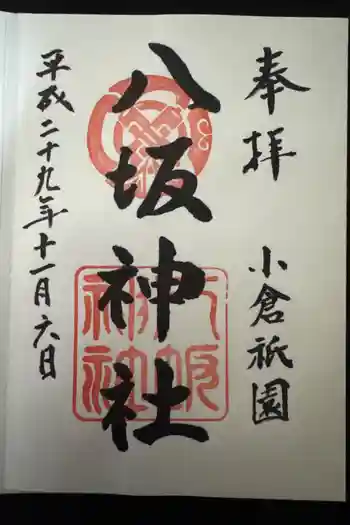 奉拝
小倉祇園
八坂神社
八坂神社
平成二十九年十一月六日